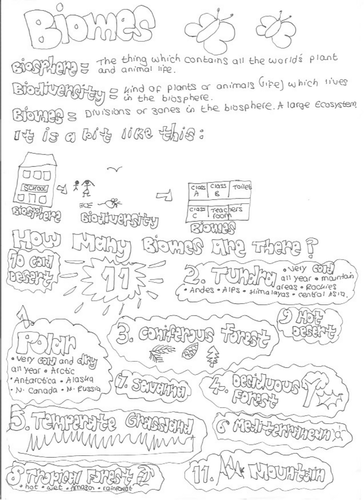 Biomes
Biosphere = The thing which contains all the world's plant
and animal life.
Biodiversity = Kind of plants or animals (life) which lives
in the biosphere.
Biomes = Divisions or zones in the biosphere. A large Ecosystem
It is a bit like this:
SCHOOL
Class A
Class B
Toilet
Class C
Teachers room
Biosphere
Biodiversity
Biomes
How Many Biomes Are There?
10 Cold
Desert
11
2. Tundra • Very cold
all year • mountain
areas • Rockies
• Andes • Alps • Himalayas • central Asia.
9 Hot
Desert
1.
Polar
• Very cold and dry
all year • Arctic
Antarctica • Alaska
• N. Canada • N. Russia
3. Coniferous Forest
7. Savanna
4. Deciduous
Forest
5. Temperate Grassland
6 Mediterranean
8 Tropical Forest
• hot • wet • Amazon • rainforest
11. Mountain